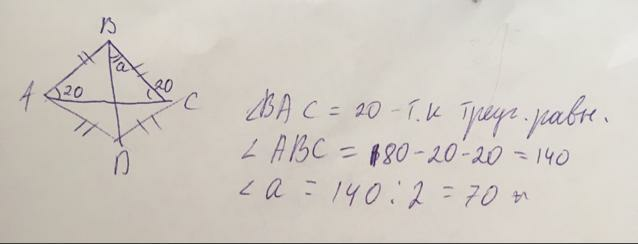 B
a
A 20 20 C
D
∠BAC = 20 - т.к треуг. равн.
∠ABC = 180-20-20 = 140
∠a = 140 : 2 = 70